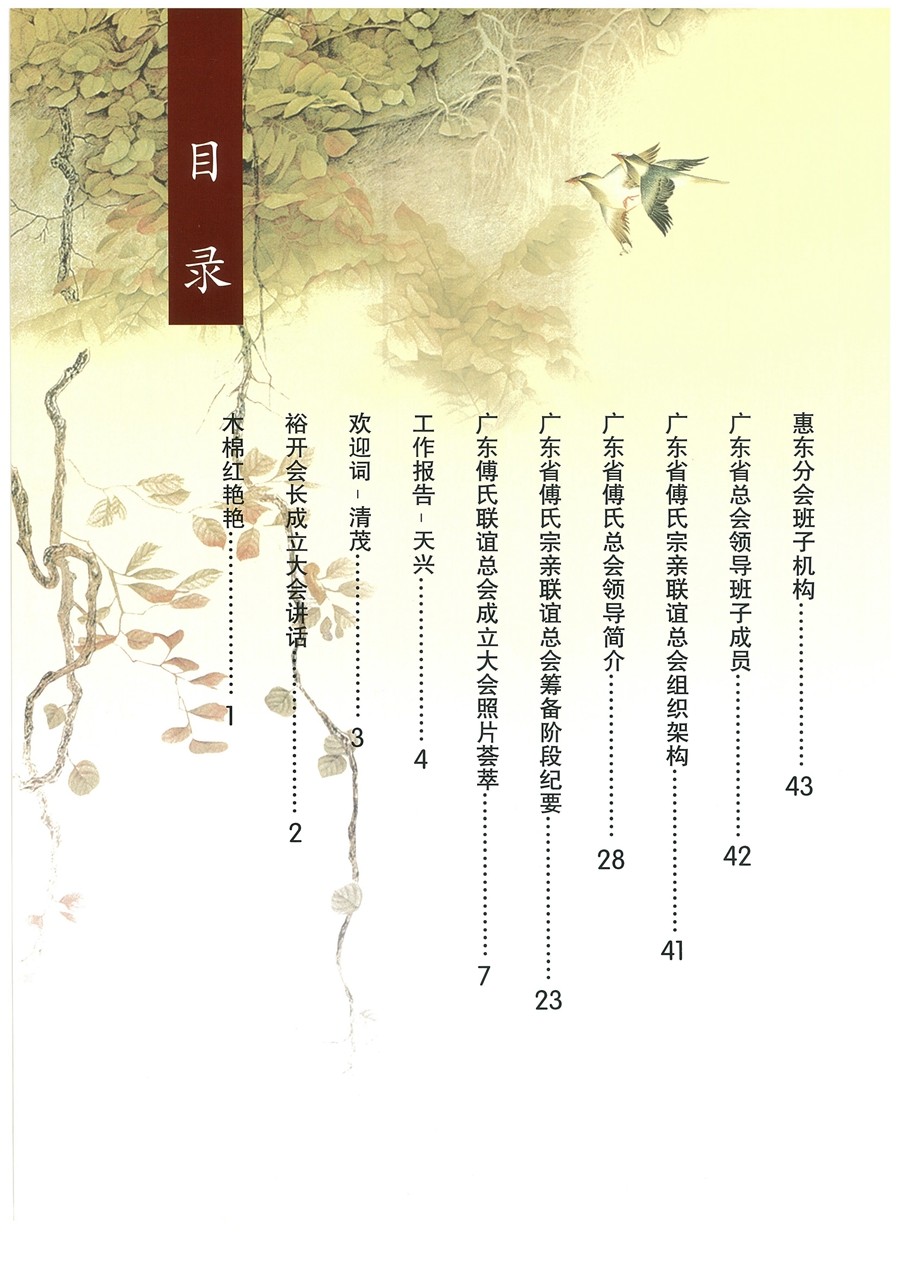 目录
木棉红艳艳……………………1
裕开会长成立大会讲话……………………2
欢迎词-清茂……………………3
工作报告-天兴……………………4
广东傅氏联谊总会成立大会照片荟萃……………………7
广东省傅氏宗亲联谊总会筹备阶段纪要……………………23
广东省傅氏总会领导简介……………………28
广东省傅氏宗亲联谊总会组织架构……………………41
广东省总会领导班子成员……………………42
惠东分会班子机构……………………43